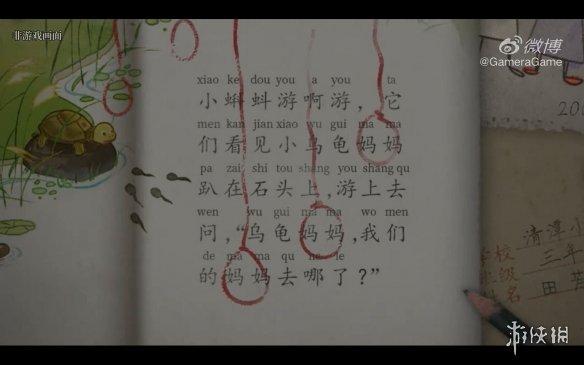 非游戏画面
微博
@GameraGame
xiao ke dou you a you ta
小蝌蚪游啊游，它
men kan jian xiao wu gui ma ma
们看见小乌龟妈妈
pa zai shi tou shang you shang qu
趴在石头上，游上去
wen wu gui ma ma wo men
问，“乌龟妈妈，我们
de ma ma qu ne le
的妈妈去哪了？”
20
学校 清潭小
班级 三年
姓名 田
游侠网